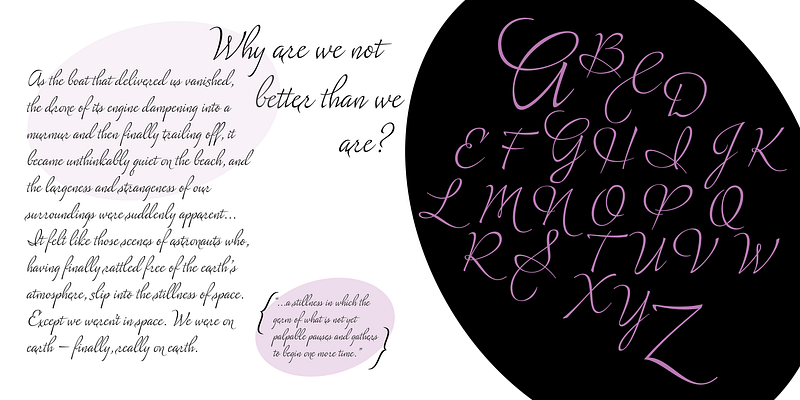 Why are we not
better than we
are?
As the boat that delivered us vanished,
the drone of its engine dampening into a
murmur and then finally trailing off, it
became unthinkably quiet on the beach, and
the largeness and strangeness of our
surroundings were suddenly apparent...
It felt like those scenes of astronauts who,
having finally rattled free of the earth's
atmosphere, slip into the stillness of space.
Except we weren't in space. We were on
earth — finally, really on earth.
{"...a stillness in which the
germ of what is not yet
palpable pauses and gathers
to begin one more time."}
A B C D
E F G H I J K
L M N O P Q
R S T U V W
X Y Z